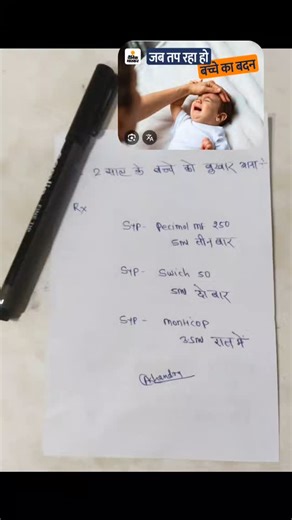 जब तप रहा हो
बच्चे का बदन
2 साल के बच्चे को बुखार आया:-
Rx
Syp- Pecimol ms 250
5ml तीन बार
Syp- Swich 50
5ml दो बार
Syp - monticop
2.5ml रात में